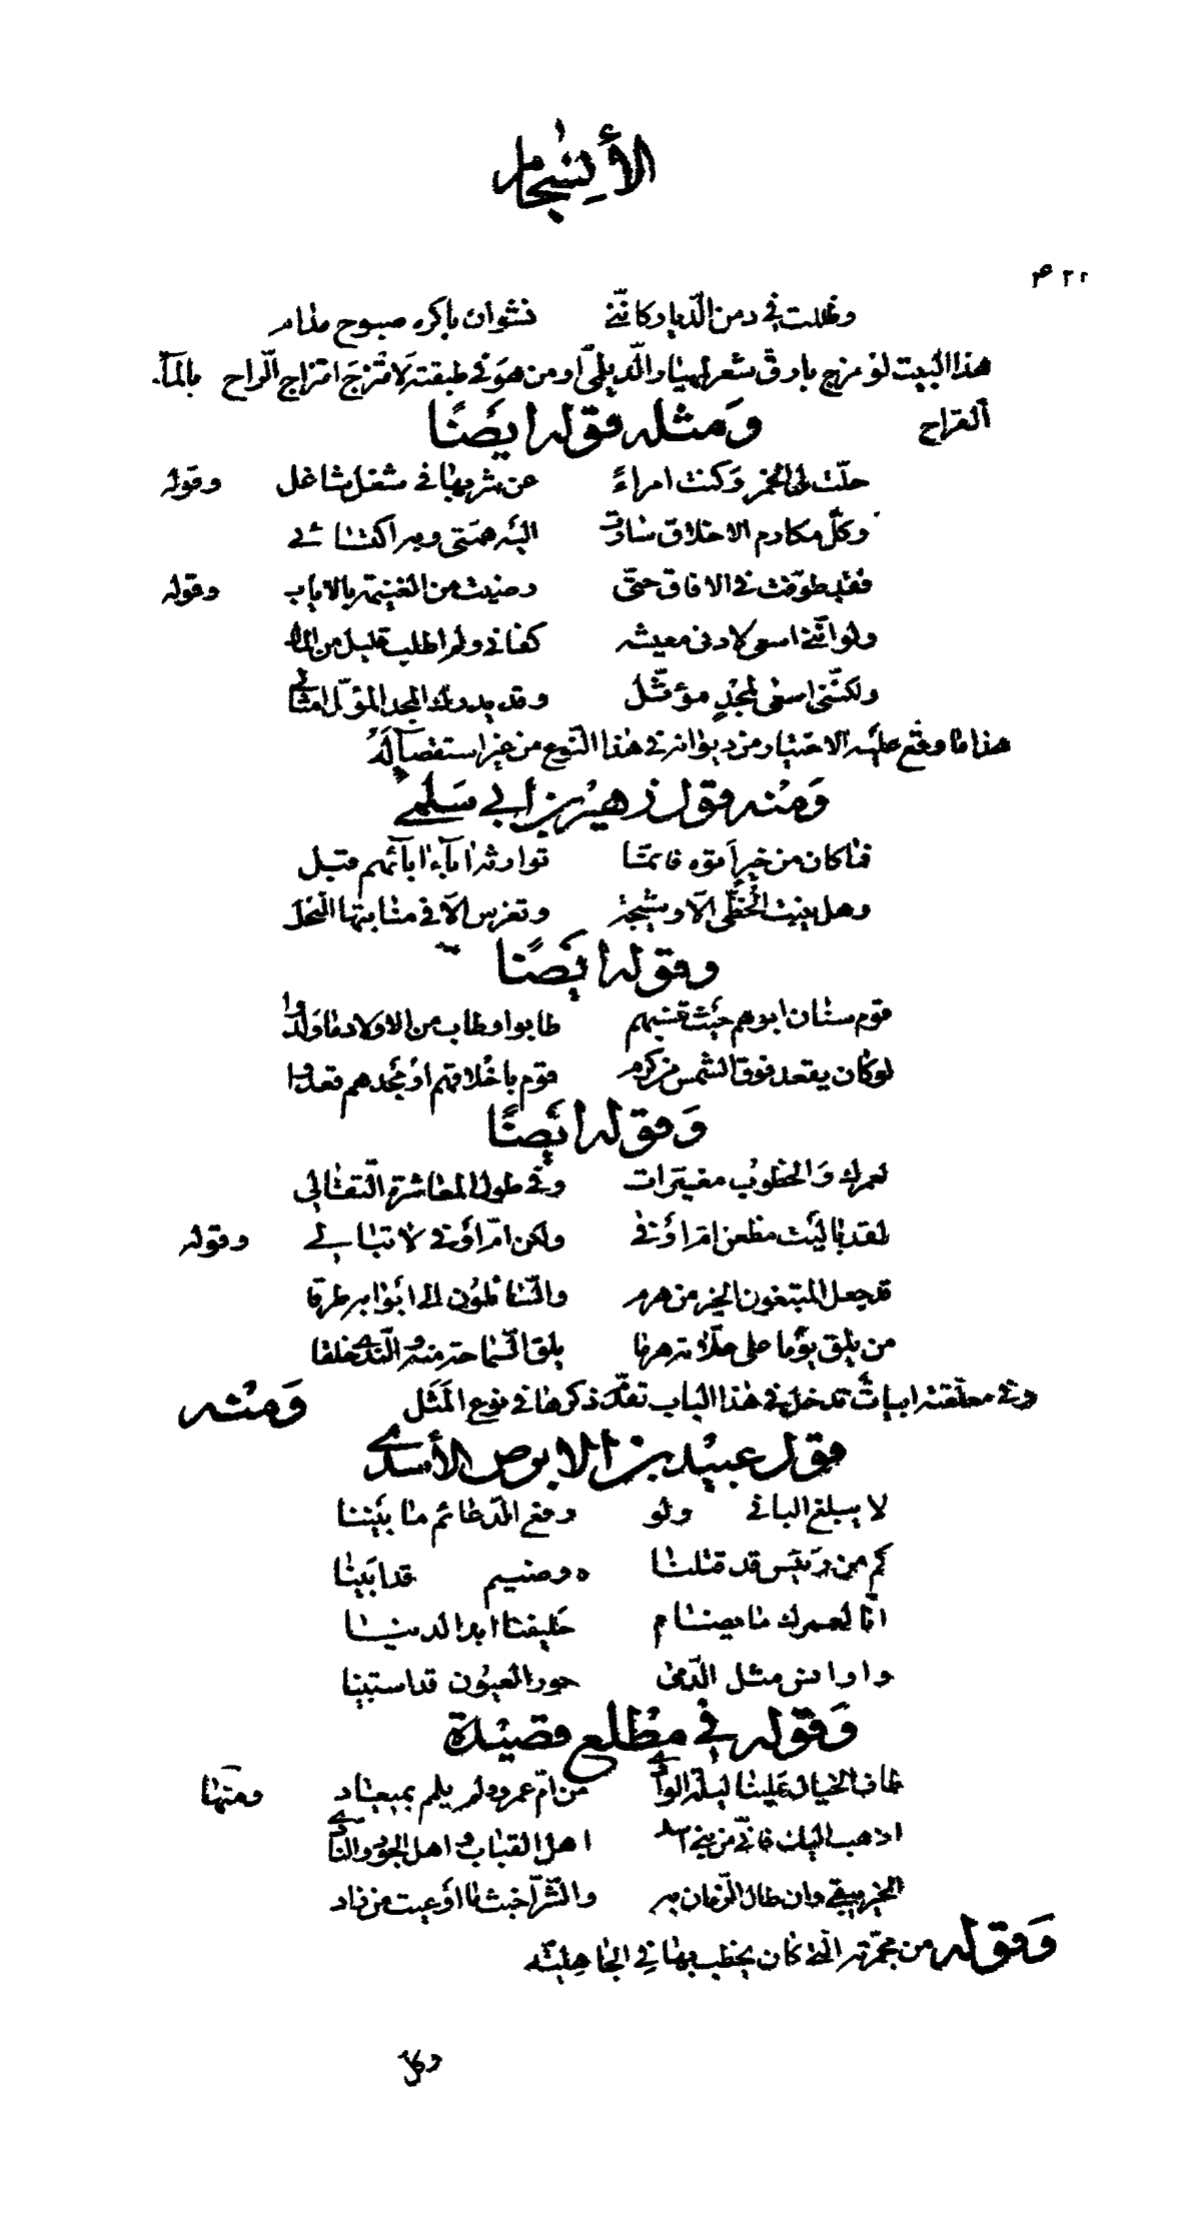 الأنسجام
٤٢٠
وظللت في دمن الدّيار كانّني نشوان باكره صبوح مدام
هذا البيت لو مزج بارق شعر مهيار الدّيلمي او من هو في طبقته لامتزجَ امتزاج الرّاح بالمآء
القراح
وَمثله قوله ايضًا
حلّت لي الخمر وَكنت امراءً عن شربها في شغل شاغل وقوله
وكلّ مكارم الاخلاق سارت اليْه همّتي وبه اكتسابي
فقد طوّفت في الافاق حتّى رضيت من الغنيمة بالاياب وقوله
ولو انّني اسعى لادنى معيشه كفاني ولم اطلب قليل من المال
ولكنّني اسعى لمجْدٍ مؤثّل وقد يدرك المجد المؤثّل امثالي
هذا ما وقع عليْه الاختيار من ديوانه في هذا النّوع من غير استقصآء لَهُ
وَمنْه قول زهيْر بن أبي سَلمى
فما كان من خير اَتوه فانمّا توارثه اباء ابآئهم قبل
وهل ينبت الخَطّي الّا وشيجه وتغرس الّا في منابتها النّخل
وقوله ايَضًا
قوم سنان ابوهم حيْث تنسبهم طابوا وطاب من الاولاد ما وَلدوا
لو كان يقعد فوق الشمس من كرم قوم باخْلاقهم اوْ مجدهم قعدوا
وَقوله ايَضًا
لعمرك وَالخطوبُ مغيّرات وفي طول المعاشرة التّقالي
لقد باليْت مظعن امّ اوْفى ولكن امّ اوْفى لا تبالي وقوله
قد جعل المبتغون الخير من هرم والسّائلوُن الى ابْوابه طرقا
من يلق يوْما على علّاته هرما يلق السّماحة منه والنّدى خلقا
وفي معلّقته ابياتٌ تدخل في هذا الباب تقدّم ذكرها في نوع المَثَل وَمنْه
قول عبيْد بن الابرص الأسدي
لا يبلغ الباني ولو رفع الدّعائم ما بَيْننا
كم من رَئيس قد قتلنا ه وضيم قد ابَيْنا
انّا لعمرك ما يضام حليفنا ابدا لدينا
واوانس مثل الدّمى حور العيوُن قد استبينا
وَقوله في مطْلع قصيْدة
طاف الخيال عَليْنا ليْلة الوادي من امّ عمرو ولم يلمم بميعاد ومنْها
اذهب اليْك فانّي من بني اسد اهل القباب واهل الجود والنّادي
الخير يبقى وان طال الزّمان به والشّرّ اخبث ما اوْعيت من زاد
وَقوله من مجمهرته الّتي كان يخطب بها في الجاهليّة
وكلّ